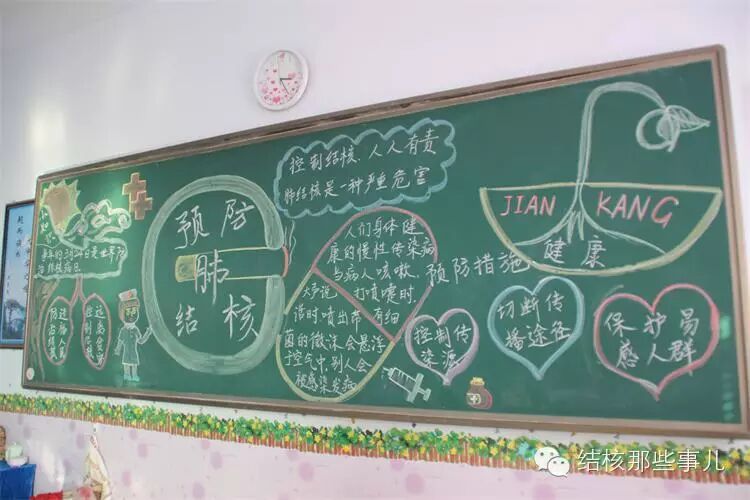 预防
肺
结核
控制结核、人人有责
肺结核是一种严重危害
人们身体健
康的慢性传染病
与病人咳嗽、
大声说 打喷嚏时
喷出带有细
菌的微沫会悬浮
于空气中,别人会
被感染发病
每年的3月24日是世界防
治结核病日
预防措施
控制传
染源
切断传
播途径
保护易
感人群
JIAN KANG
健康
结核那些事儿